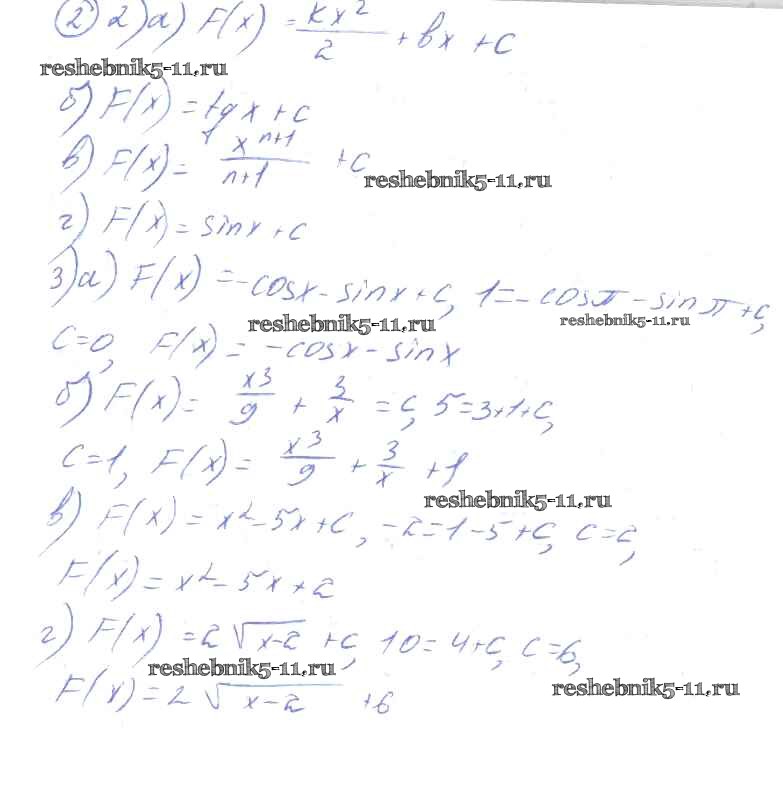 ② 2) а) F(x) = kx²/2 + bx + c
reshebnik5-11.ru
б) F(x) = tgx + c
в) F(x) = x^(n+1)/(n+1) + c
reshebnik5-11.ru
г) F(x) = sinx + c
3) а) F(x) = -cosx - sinx + c, 1 = -cosπ - sinπ + c,
reshebnik5-11.ru
reshebnik5-11.ru
c=0, F(x) = -cosx - sinx
б) F(x) = x³/9 + 3/x = c, 5=3+1+c,
c=1, F(x) = x³/9 + 3/x + 1
reshebnik5-11.ru
в) F(x) = x² - 5x + c, -2=1-5+c, c=2,
F(x) = x² - 5x + 2
г) F(x) = 2√(x-2) + c, 10 = 4+c, c=6,
reshebnik5-11.ru
F(x) = 2√(x-2) + 6
reshebnik5-11.ru